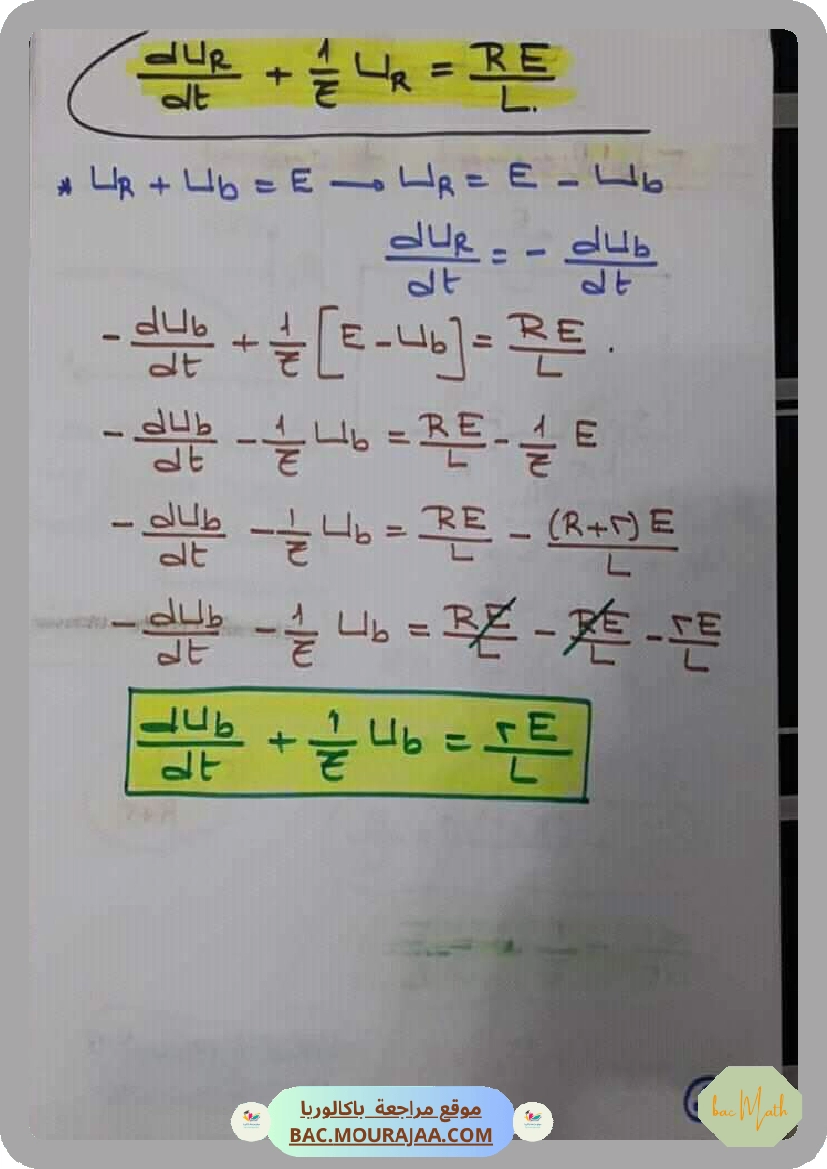 dU_R/dt + 1/τ U_R = RE/L.
* U_R + U_b = E → U_R = E - U_b
dU_R/dt = - dU_b/dt
- dU_b/dt + 1/τ [E - U_b] = RE/L .
- dU_b/dt - 1/τ U_b = RE/L - 1/τ E
- dU_b/dt - 1/τ U_b = RE/L - (R+r)E/L
- dU_b/dt - 1/τ U_b = RE/L - RE/L - rE/L
dU_b/dt + 1/τ U_b = rE/L
موقع مراجعة باكالوريا
BAC.MOURAJAA.COM
bac Math